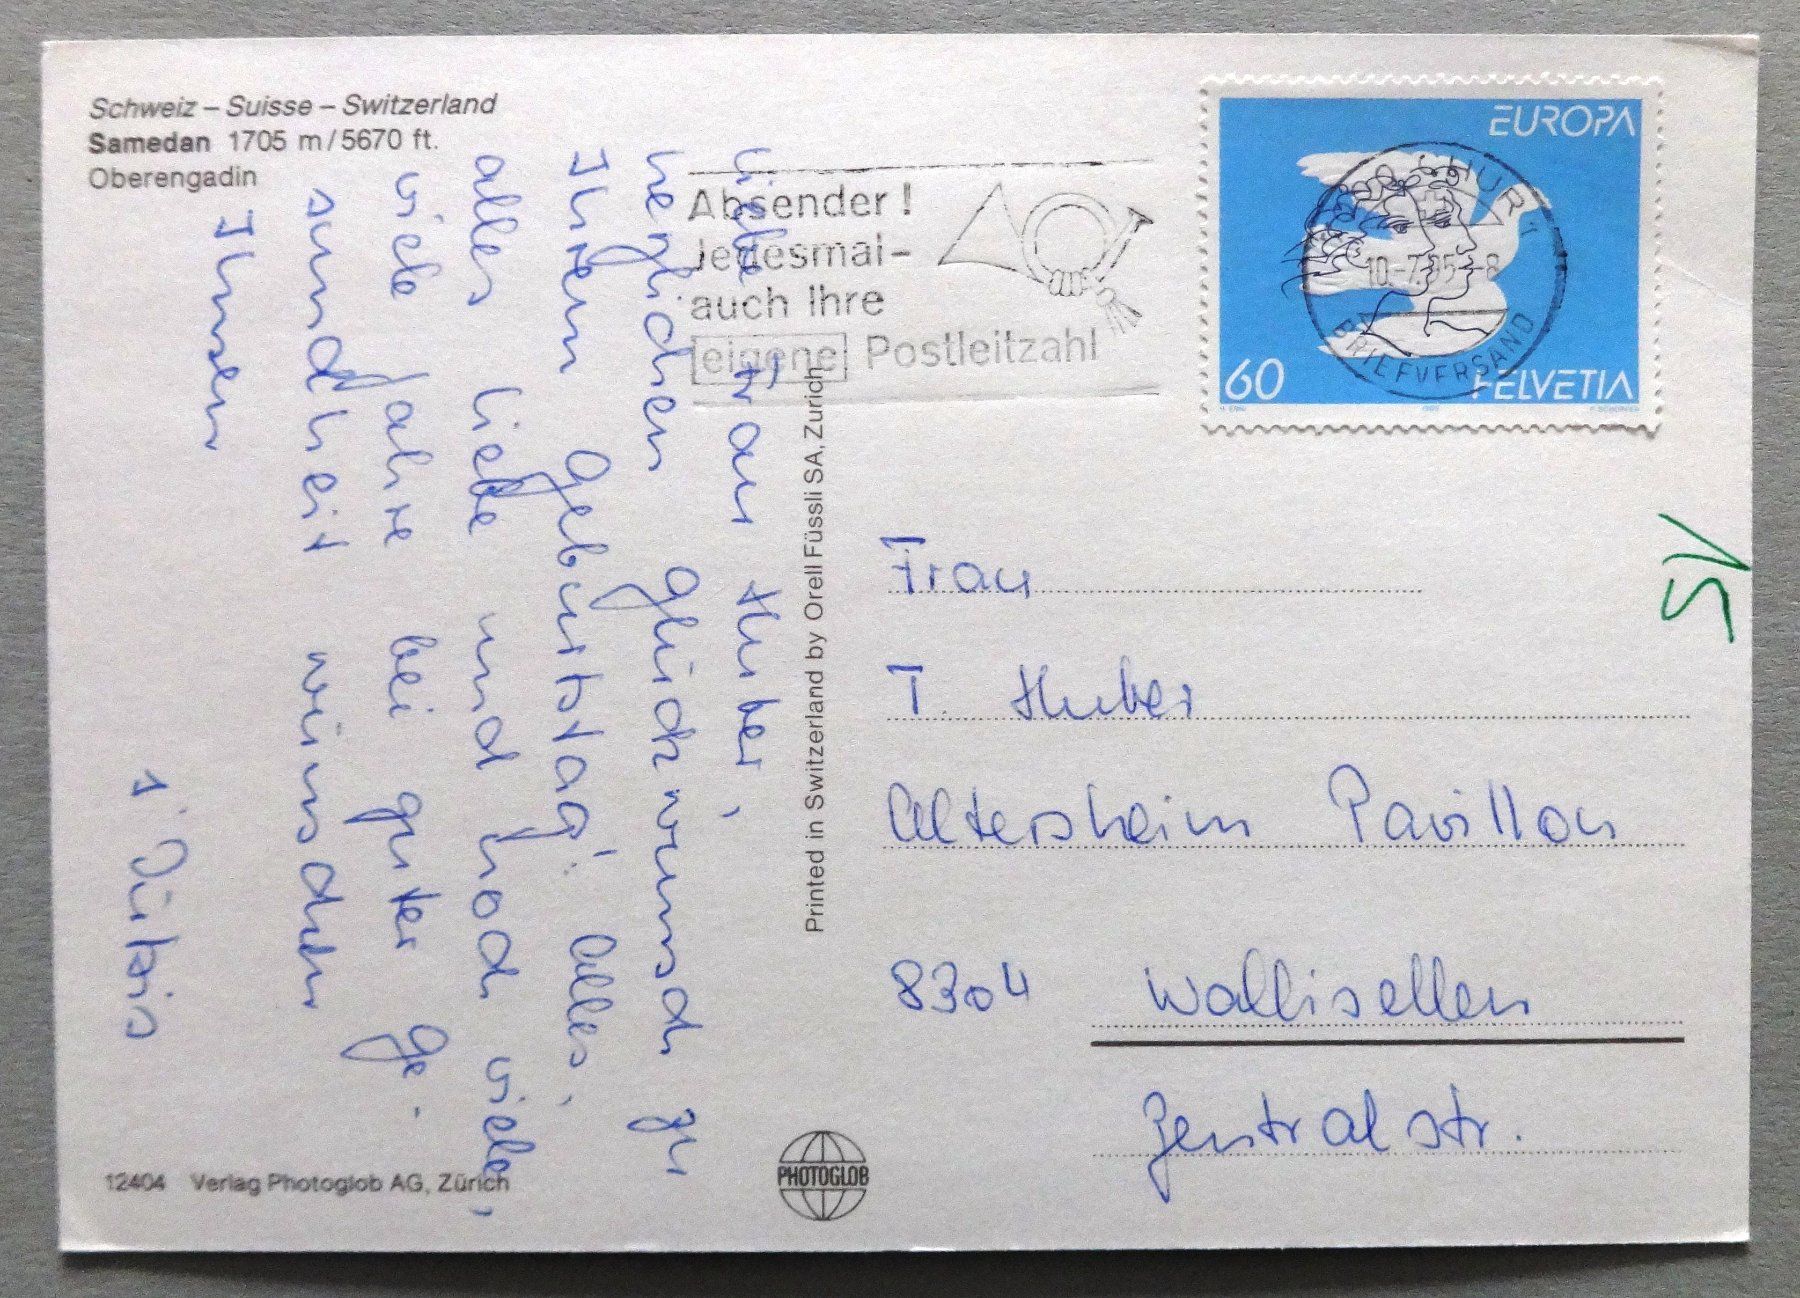 Schweiz – Suisse – Switzerland
Samedan 1705 m/5670 ft.
Oberengadin
Absender!
Jedesmal-
auch Ihre
eigene Postleitzahl
EUROPA
CHUR 1
10.-7.95 -8
BRIEFVERSAND
60
HELVETIA
Liebe Frau Huber,
herzlichen Glückwunsch zu
Ihrem Geburtstag! Alles,
alles Liebe und noch viele,
viele Jahre bei guter Ge-
sundheit wünschen
Ihnen
Printed in Switzerland by Orell Füssli SA, Zürich
Frau
T. Huber
Altersheim Pavillon
8304 Wallisellen
Zentralstr.
SV
12404 Verlag Photoglob AG, Zürich
PHOTOGLOB